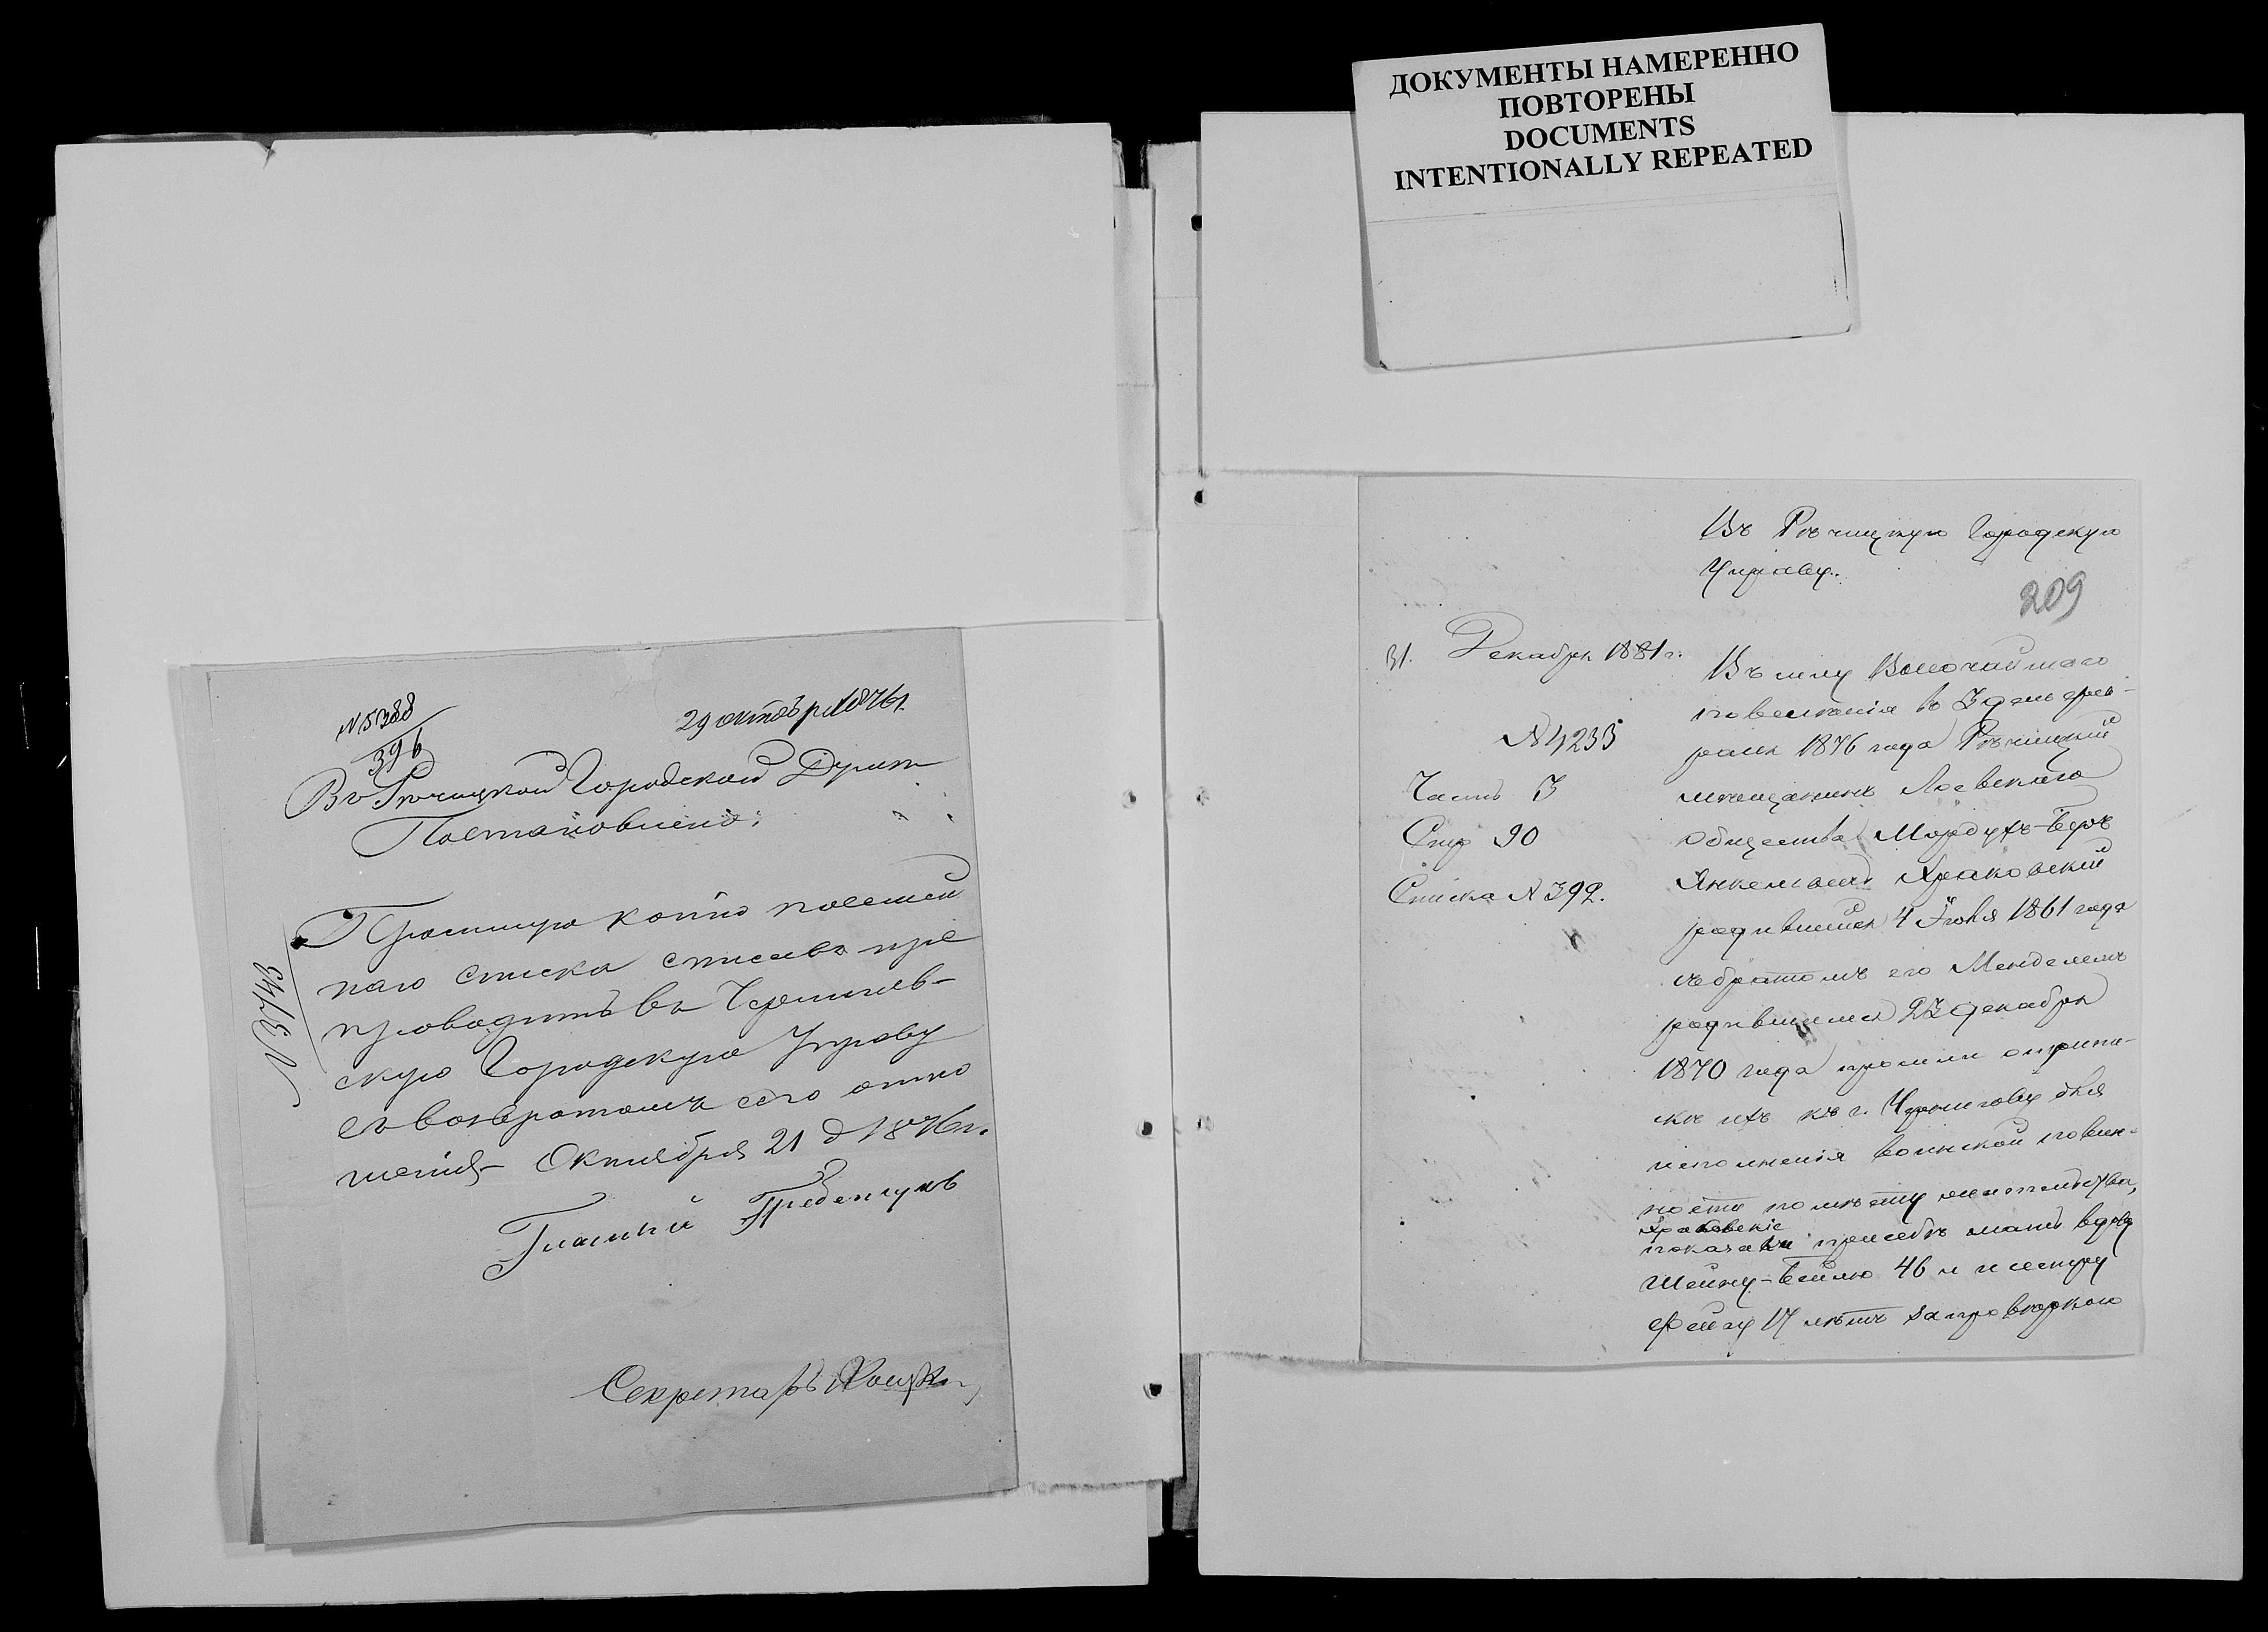 ДОКУМЕНТЫ НАМЕРЕННО
ПОВТОРЕНЫ
DOCUMENTS
INTENTIONALLY REPEATED
№ 5388
396
29 октября 1876 г.
Въ Речицкой Городской Думе
Постановлено:
копію посемей
наго списка списавъ пре
проводить въ Чернигов-
скую Городскую Управу
съ возвратомъ сего отно
шенія Октября 21 д 1876 г.
Гласный Гребенчуковъ
Секретарь
№ 3743
Въ Рѣчицкую Городскую
Управу.
209
31. Декабря 1881 г.
№ 4233
Часть 3
Стр 90
Списка № 392.
Въ силу Высочайшаго
повеленія въ 3 день фев-
раля 1876 года Рѣчицкій
мѣщанинъ Лоевскаго
общества Мордухъ-Беръ
Янкелевъ Драковскій
родившійся 4 Іюня 1861 года
съ братомъ его Менделемъ
родившимся 23 декабря
1870 года просили припи-
ски ихъ къ г. Чернигову для
исполненія воинской повин-
ности по мѣсту жительства,
Драковскіе
показали при себѣ мать вдову
Шейну-Бейлю 46 л и сестру
Фейгу 17 лѣтъ за провѣркою